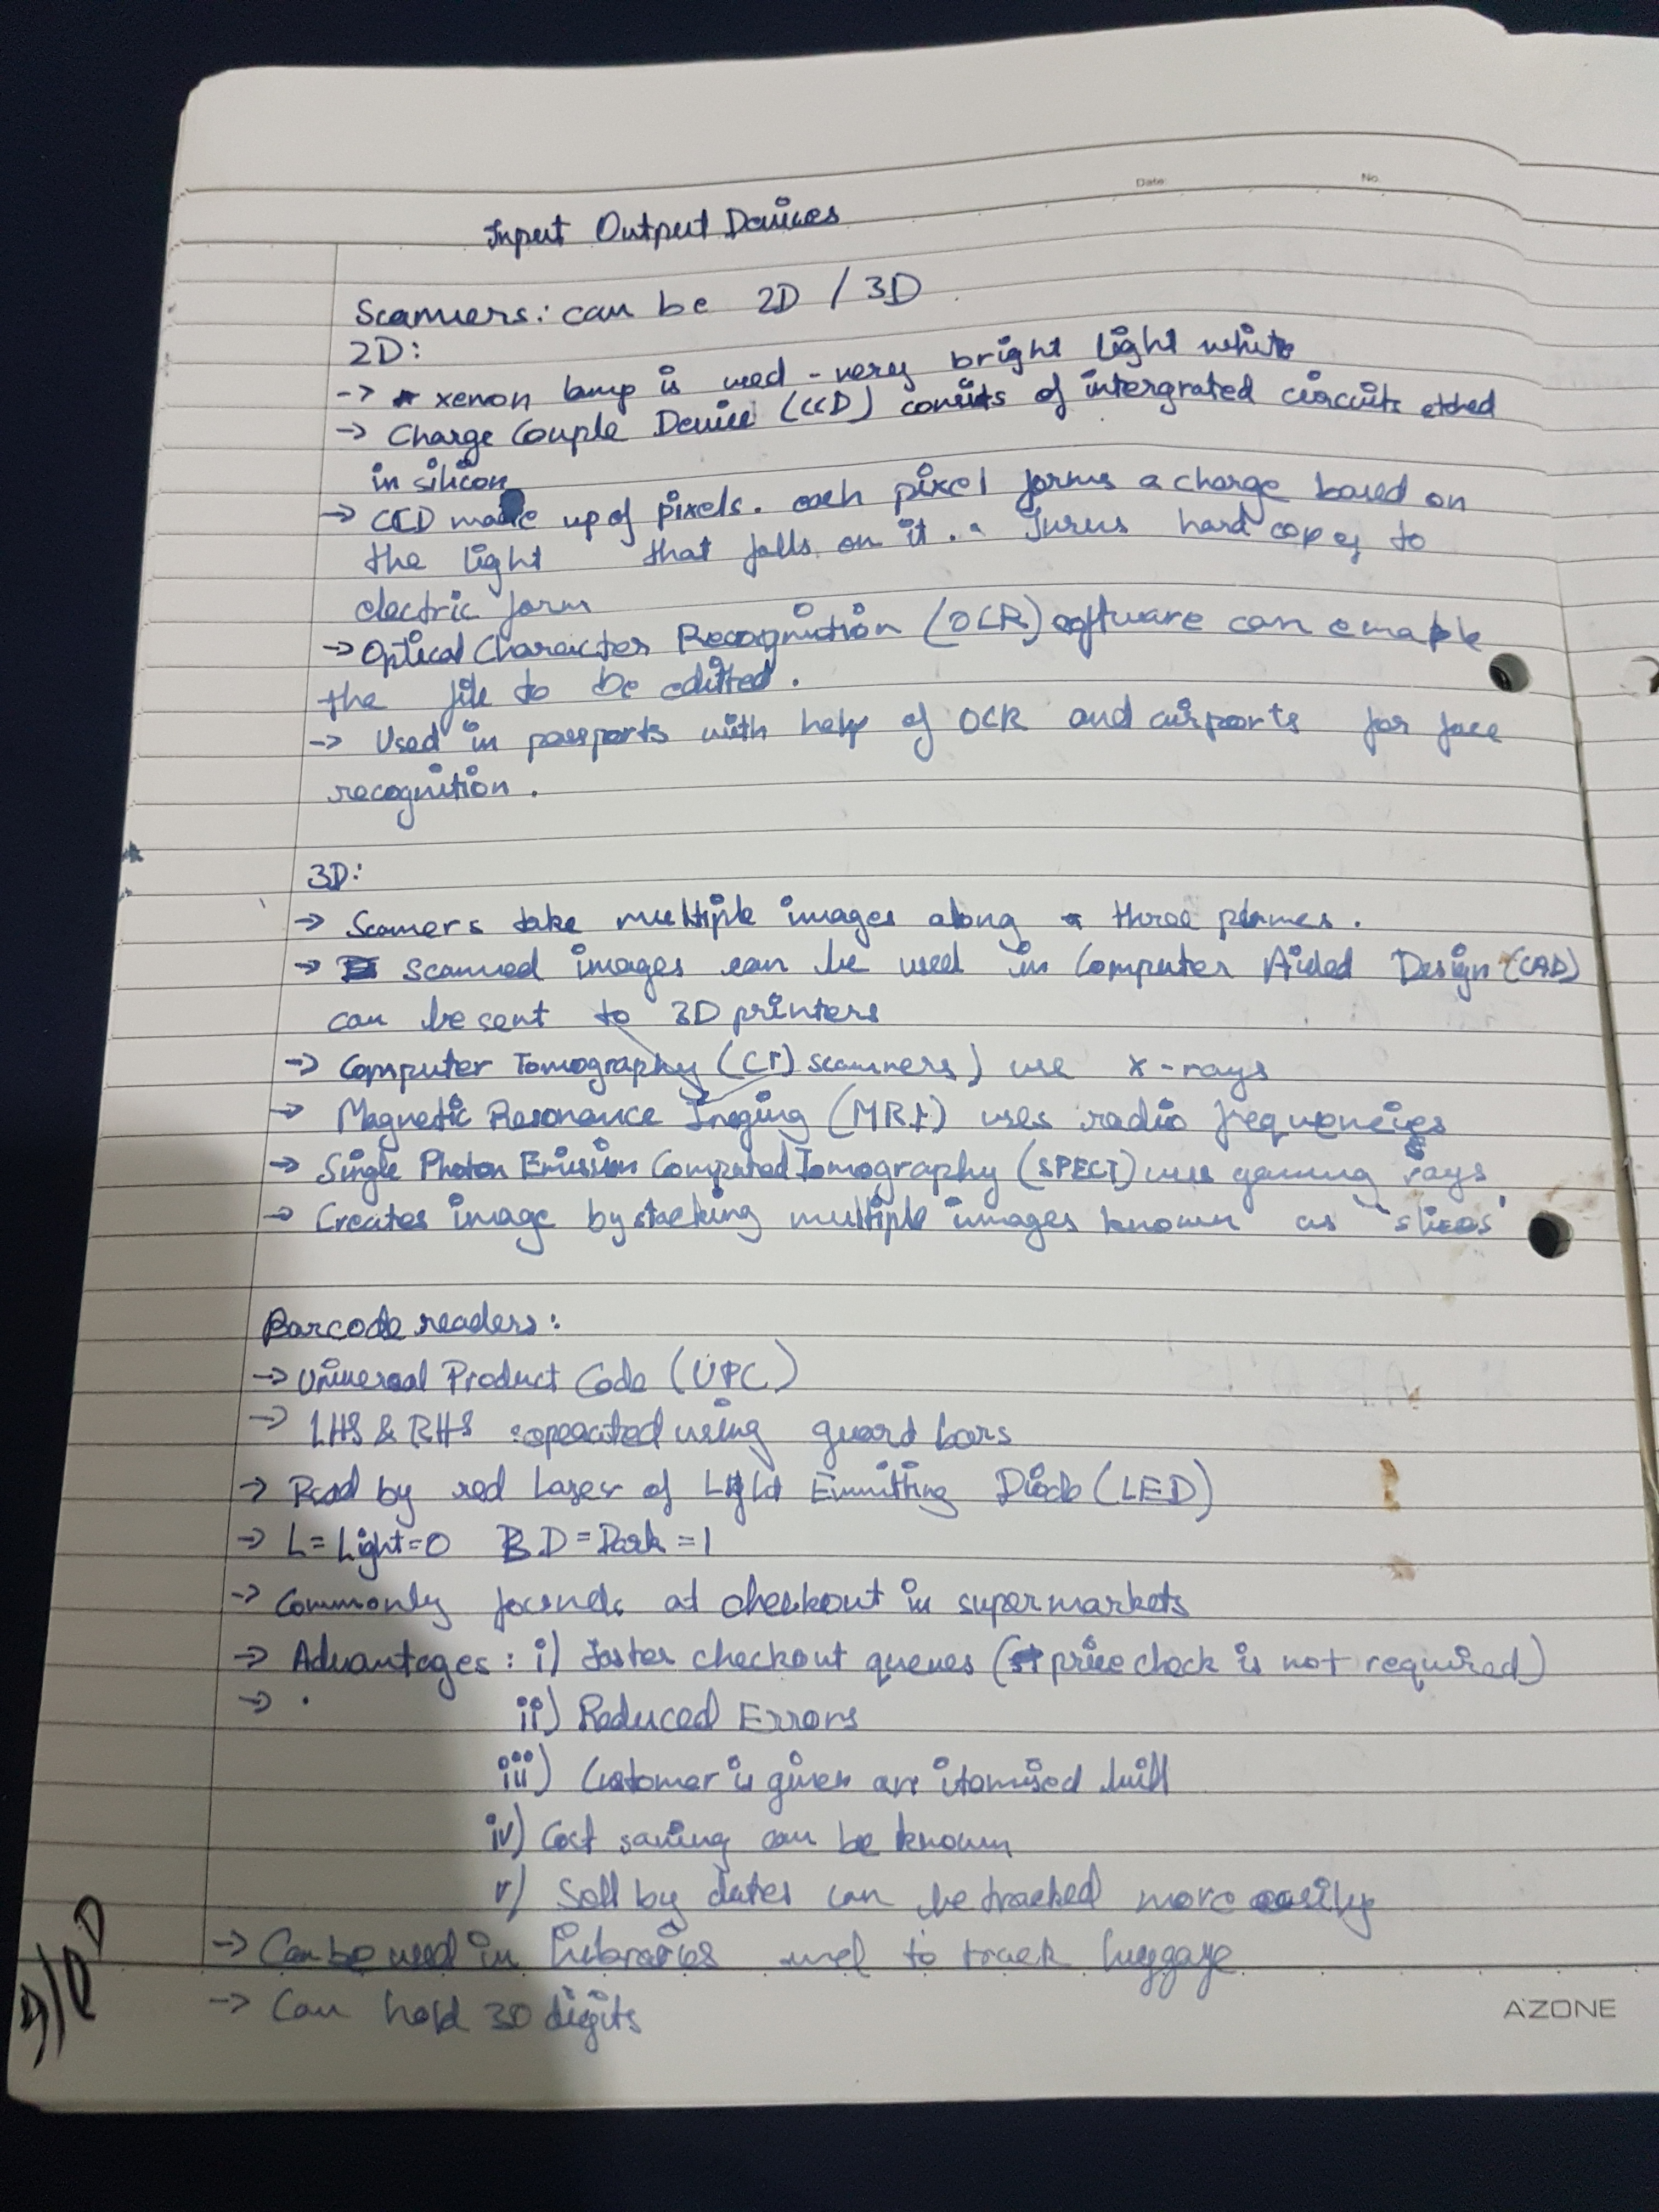 Date:
No.
Input Output Devices
Scanners: can be 2D / 3D
2D:
-> xenon lamp is used - very bright light white
-> Charge Couple Device (CCD) consits of intergrated circuits etched
in silicon
-> CCD made up of pixels. each pixel forms a charge based on
the light that falls on it. Turns hard copy to
electric form
-> Optical Character Recognition (OCR) software can enable
the file to be editted.
-> Used in passports with help of OCR and airports for face
recognition.
3D:
-> Scanners take multiple images along three planes.
-> Scanned images can be used in Computer Aided Design (CAD)
can be sent to 3D printers
-> Computer Tomography (CT) scanners) use x-rays
-> Magnetic Resonance Imaging (MRI) uses radio frequencies
-> Single Photon Emission Computed Tomography (SPECT) uses rays
-> Creates image by stacking multiple images known as 'slices'
Barcode readers:
-> Universal Product Code (UPC)
-> LHS & RHS seperated using guard bars
-> Read by red laser of Light Emmitting Diode (LED)
-> L = Light = 0 D = Dark = 1
-> Commonly founds at checkout in supermarkets
-> Advantages: i) faster checkout queues (price check is not required)
->
ii) Reduced Errors
iii) Customer is given an itemised bill
iv) Cost saving can be known
v) Sell by dates can be tracked more easily
-> Can be used in libraries and to track luggage
-> Can hold 30 digits
A'ZONE